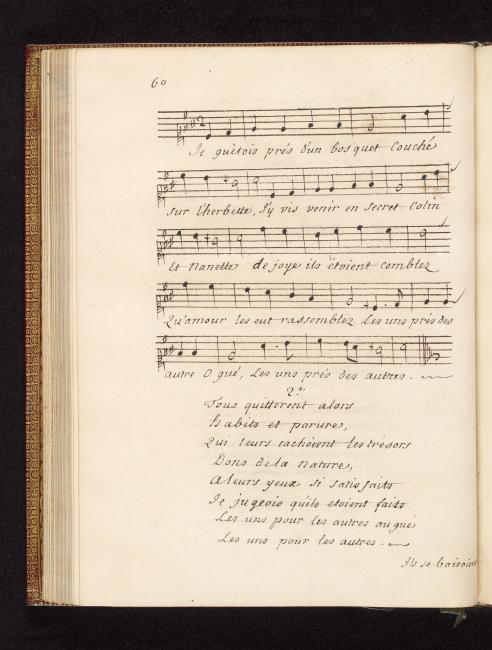 60
Je guètois prés d'un bosquet Couché
sur l'herbette, J'y vis venir en secret Colin
Et Nanette de joye ils ëtoient comblez
Qu'amour les eut rassemblez Les uns prés des
autre O gué, Les uns prés des autres.
2.e
Tous quitterent alors
Habits et parure,
Qui leurs cachoient les trésors
Dons de la Nature,
A leurs yeux si satisfaits
Je jugeois qu'ils etoient faits
Les uns pour les autres au gué
Les uns pour les autres.
Ils se baisoient